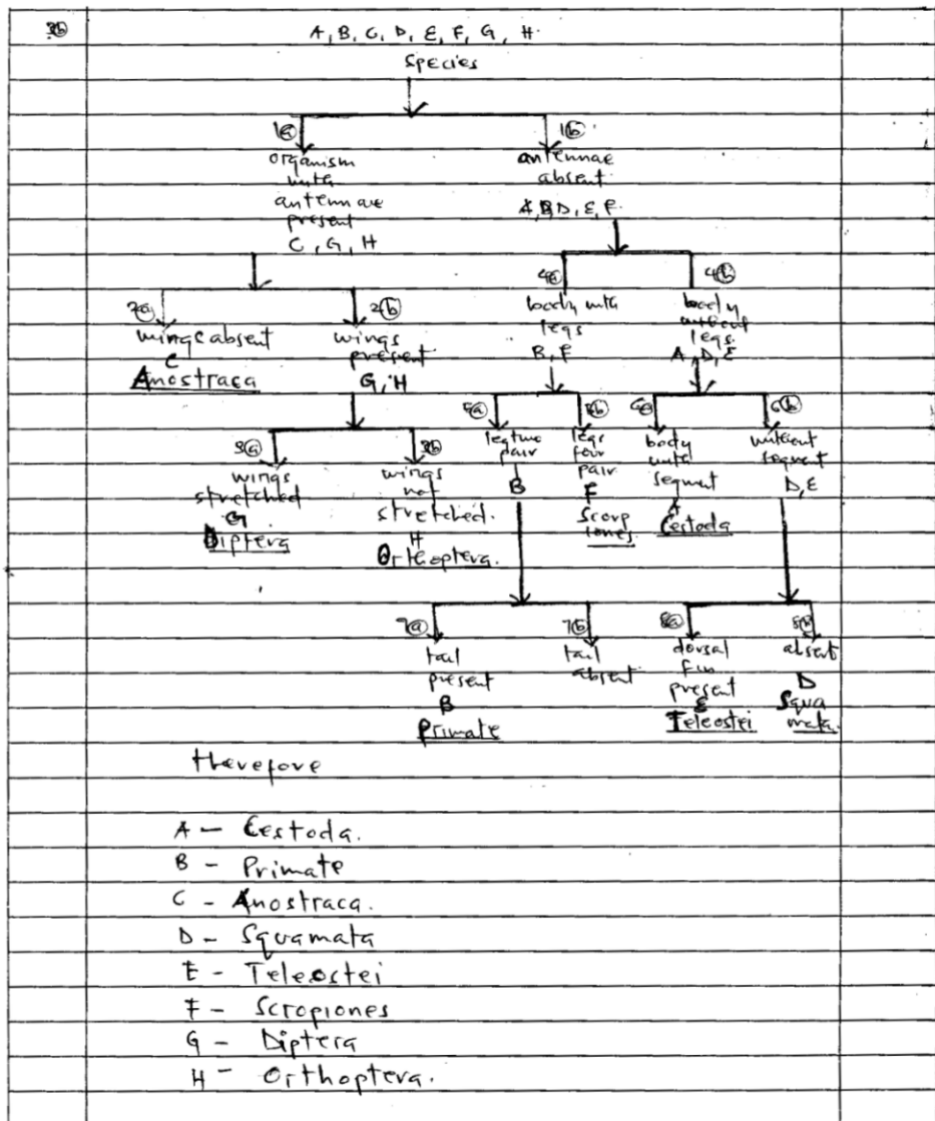 3b
A, B, C, D, E, F, G, H.
Species
1a
1b
organism
with
antennae
present
C, G, H
antennae
absent.
A, B, D, E, F.
2a
wings absent
C
Anostraca
2b
wings
present
G, H
4a
body with
legs
B, F
4b
body
without
legs.
A, D, E
3a
wings
stretched
G
Diptera
3b
wings
not
stretched.
H
Orthoptera.
5a
leg two
pair
B
5b
legs
four
pair
F
Scorp
iones.
6a
body
with
segment
A
Cestoda
6b
without
segment
D, E
7a
tail
present
B
Primate
7b
tail
absent
8a
dorsal
fin
present
E
Teleostei
8b
absent
D
Squa
mata.
therefore
A - Cestoda.
B - Primate
C - Anostraca.
D - Squamata
E - Teleostei
F - Scropiones
G - Diptera
H - Orthoptera.